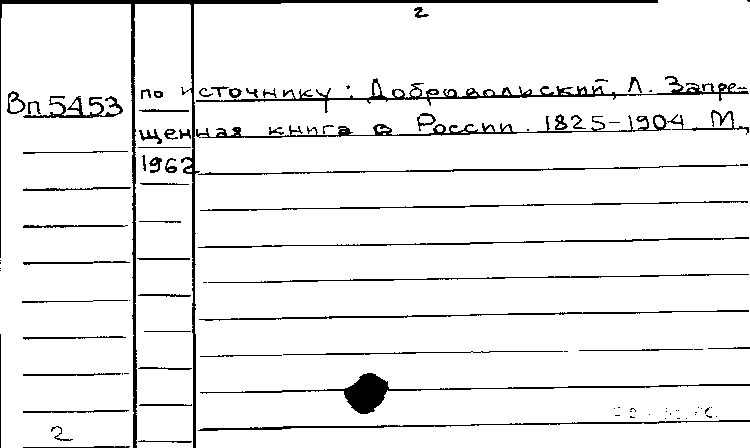 2
Вп5453
по источнику: Добровольский, Л. Запре-
щенная книга в России. 1825-1904. М.,
1962
2